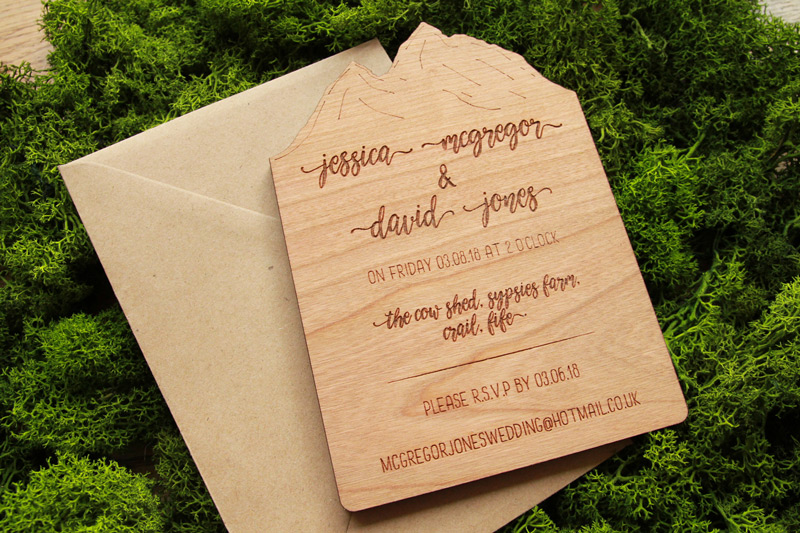 jessica mcgregor
&
david jones
ON FRIDAY 03.08.18 AT 2 O'CLOCK
the cow shed, gypsies farm,
crail, fife
PLEASE R.S.V.P BY 03.06.18
MCGREGORJONESWEDDING@HOTMAIL.CO.UK